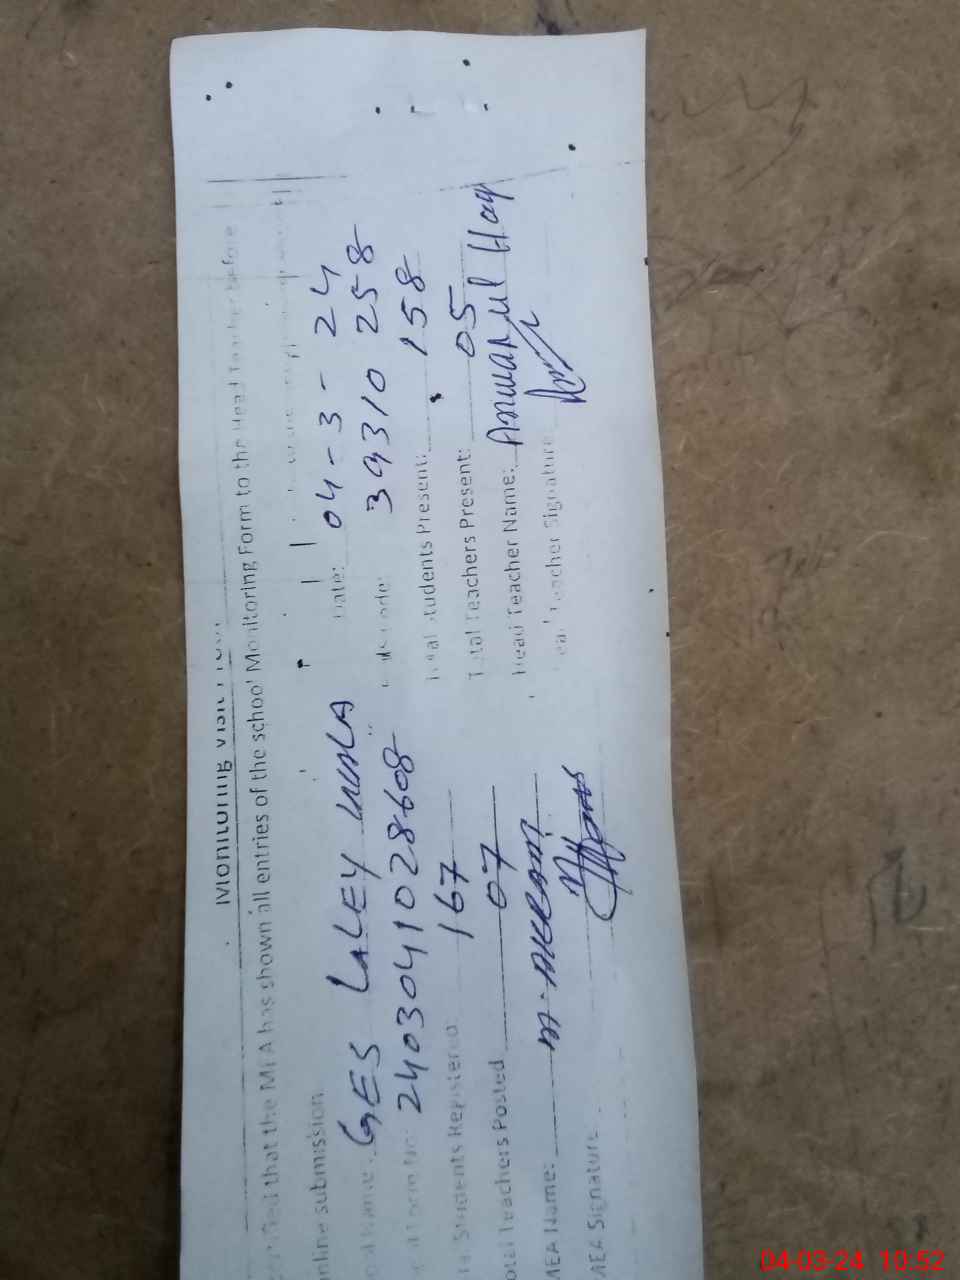 Monitoring Visit
that the MEA has shown all entries of the school Monitoring Form to the Head Teacher before
online submission
Name: GES LALEY Date: 04-3-24
2403041028608 code: 39310 258
Students Registered: 167 Total Students Present: 158
Total Teachers Posted 07 Total Teachers Present: 05
MEA Name: M. Head Teacher Name: Anwar ul Haq
MEA Signature Head Teacher Signature
04-03-24 10:52